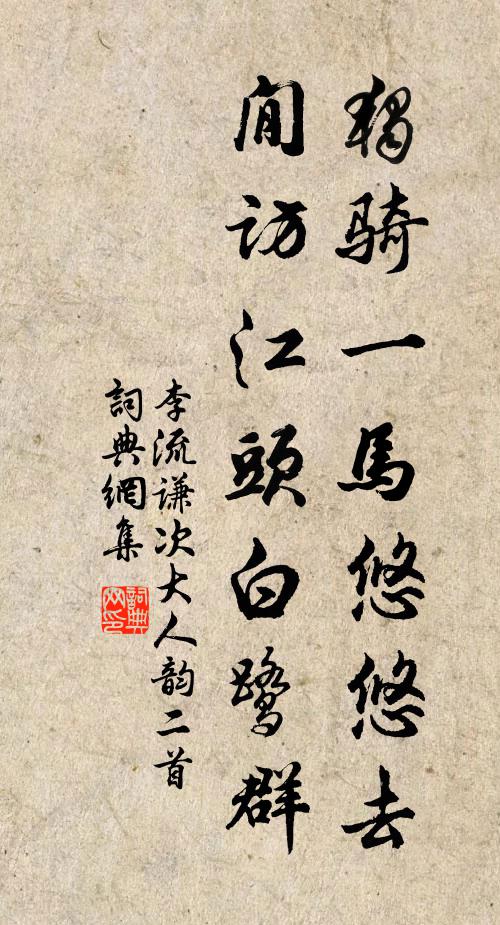 獨騎一馬悠悠去
閒訪江頭白鷺群
李流谦次大人韵二首
詞典網集
詞典
网印